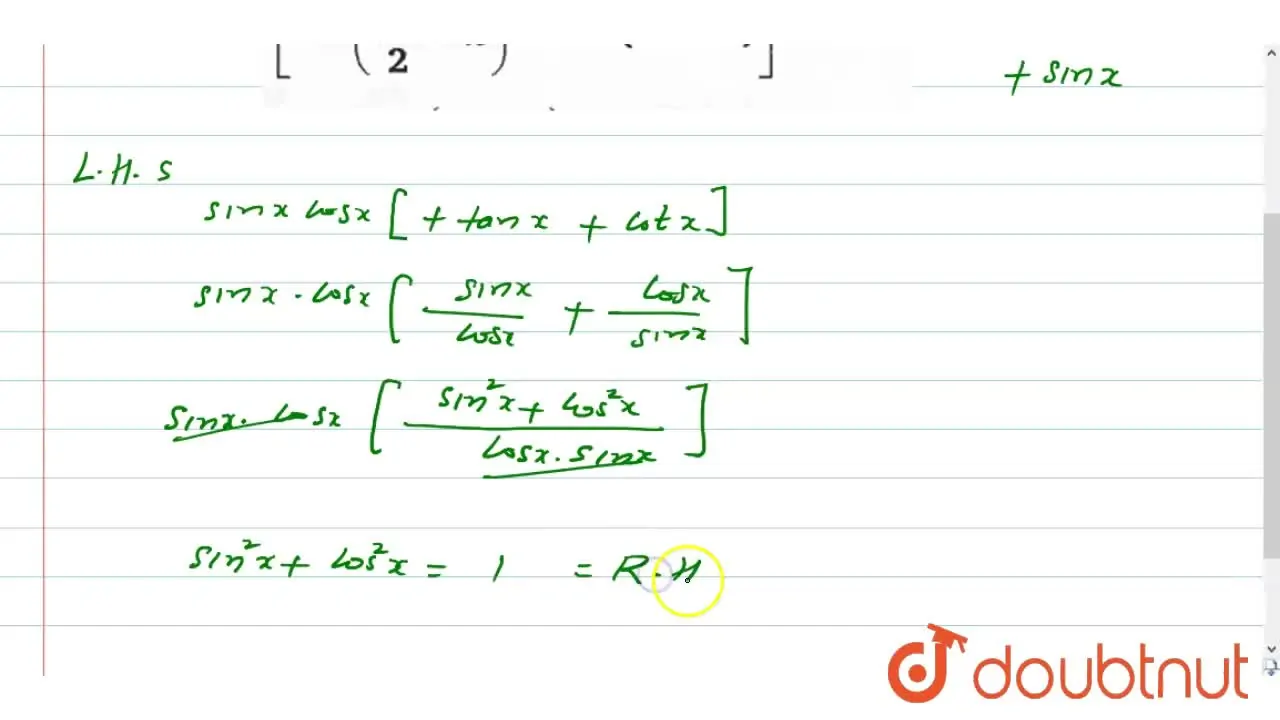 [ ( 2 ) ]
+ sin x
L.H.S
sin x cos x [ + tan x + cot x ]
sin x . cos x [ sin x / cos x + cos x / sin x ]
sin x . cos x [ sin² x + cos² x / cos x . sin x ]
sin² x + cos² x = 1 = R.H
doubtnut